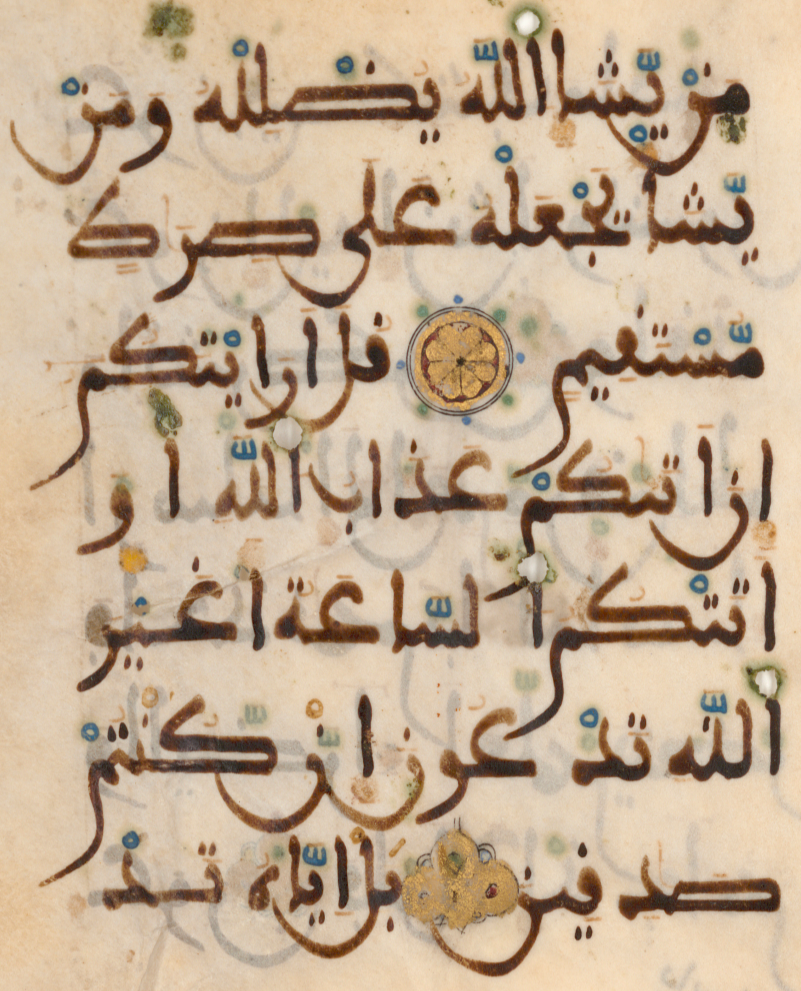 من يشإ الله يضلله ومن
يشأ يجعله على صرط
مستقيم قل أرأيتكم
إن أتىكم عذاب الله أو
أتتكم الساعة أغير
الله تدعون إن كنتم
صدقين بل إياه تد